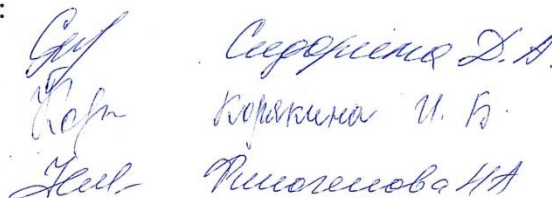 :
Сидорина Д. А.
Корякина И. Б.
Финогенова НА